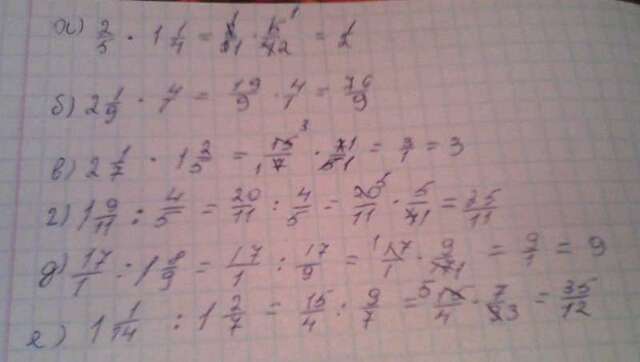 а) 2/5 · 1 1/4 = 2/5 · 5/4 = 1/2
б) 2 1/9 · 4/1 = 19/9 · 4/1 = 76/9
в) 2 1/7 · 1 2/5 = 15/7 · 7/5 = 3/1 = 3
г) 1 9/11 : 4/5 = 20/11 : 4/5 = 20/11 · 5/4 = 25/11
д) 17/1 : 1 8/9 = 17/1 : 17/9 = 17/1 · 9/17 = 9/1 = 9
е) 1 1/14 : 1 2/7 = 15/4 : 9/7 = 15/4 · 7/9 = 35/12